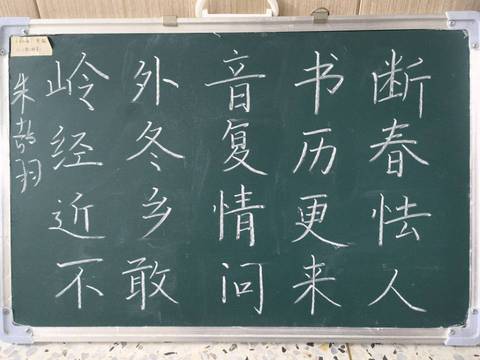 岭外音书断
经冬复历春
近乡情更怯
不敢问来人
朱喆羽